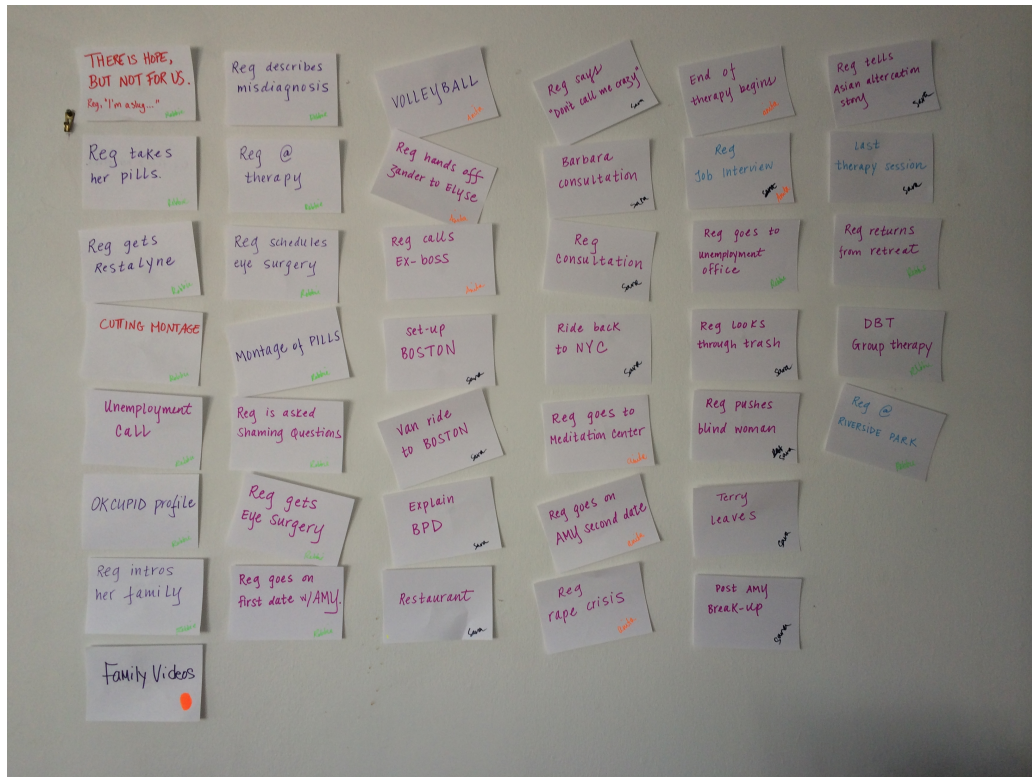 THERE IS HOPE,
BUT NOT FOR US.
Reg, "I'm a slug..."
Robbie
Reg takes
her pills.
Robbie
Reg gets
Restalyne
Robbie
CUTTING MONTAGE
Robbie
Unemployment
Call
Robbie
OKCUPID profile
Robbie
Reg intros
her family
Robbie
Family Videos
Reg describes
misdiagnosis
Robbie
Reg @
therapy
Robbie
Reg schedules
eye surgery
Robbie
Montage of PILLS
Robbie
Reg is asked
Shaming Questions
Robbie
Reg gets
Eye Surgery
Robbie
Reg goes on
first date w/AMY.
Robbie
VOLLEYBALL
Anita
Reg hands off
Zander to Elyse
Anita
Reg calls
EX-boss
Anita
set-up
BOSTON
Sara
Van ride
to BOSTON
Sara
Explain
BPD
Sara
Restaurant
Sara
Reg says
"Don't call me crazy"
Sara
Barbara
consultation
Sara
Reg
consultation
Sara
Ride back
to NYC
Sara
Reg goes to
Meditation Center
Anita
Reg goes on
AMY second date
Anita
Reg
rape crisis
Anita
End of
therapy begins
Anita
Reg
Job Interview
Sara
Anita
Reg goes to
unemployment
office
Robbie
Reg Looks
through trash
Sara
Reg pushes
blind woman
Sara
Terry
Leaves
Sara
Post AMY
Break-Up
Sara
Reg tells
Asian altercation
story
Sara
Last
therapy session
Sara
Reg returns
from retreat
Robbie
DBT
Group therapy
Robbie
Reg @
RIVERSIDE PARK
Robbie